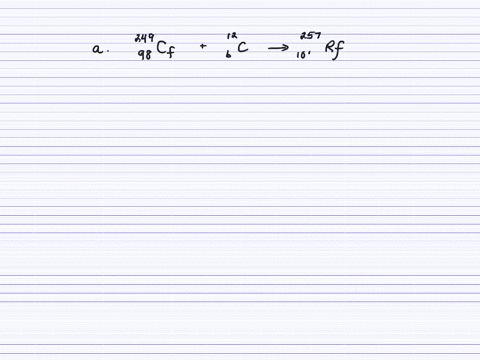 a. ²⁴⁹₉₈Cf + ¹²₆C → ²⁵⁷₁₀₁Rf